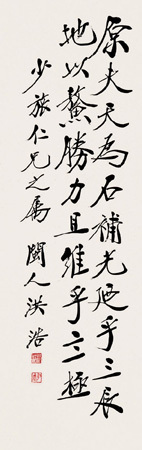 原夫天為石補光施乎三辰
地以鰲勝力且維乎六極
少旅仁兄之屬 閩人洪浩